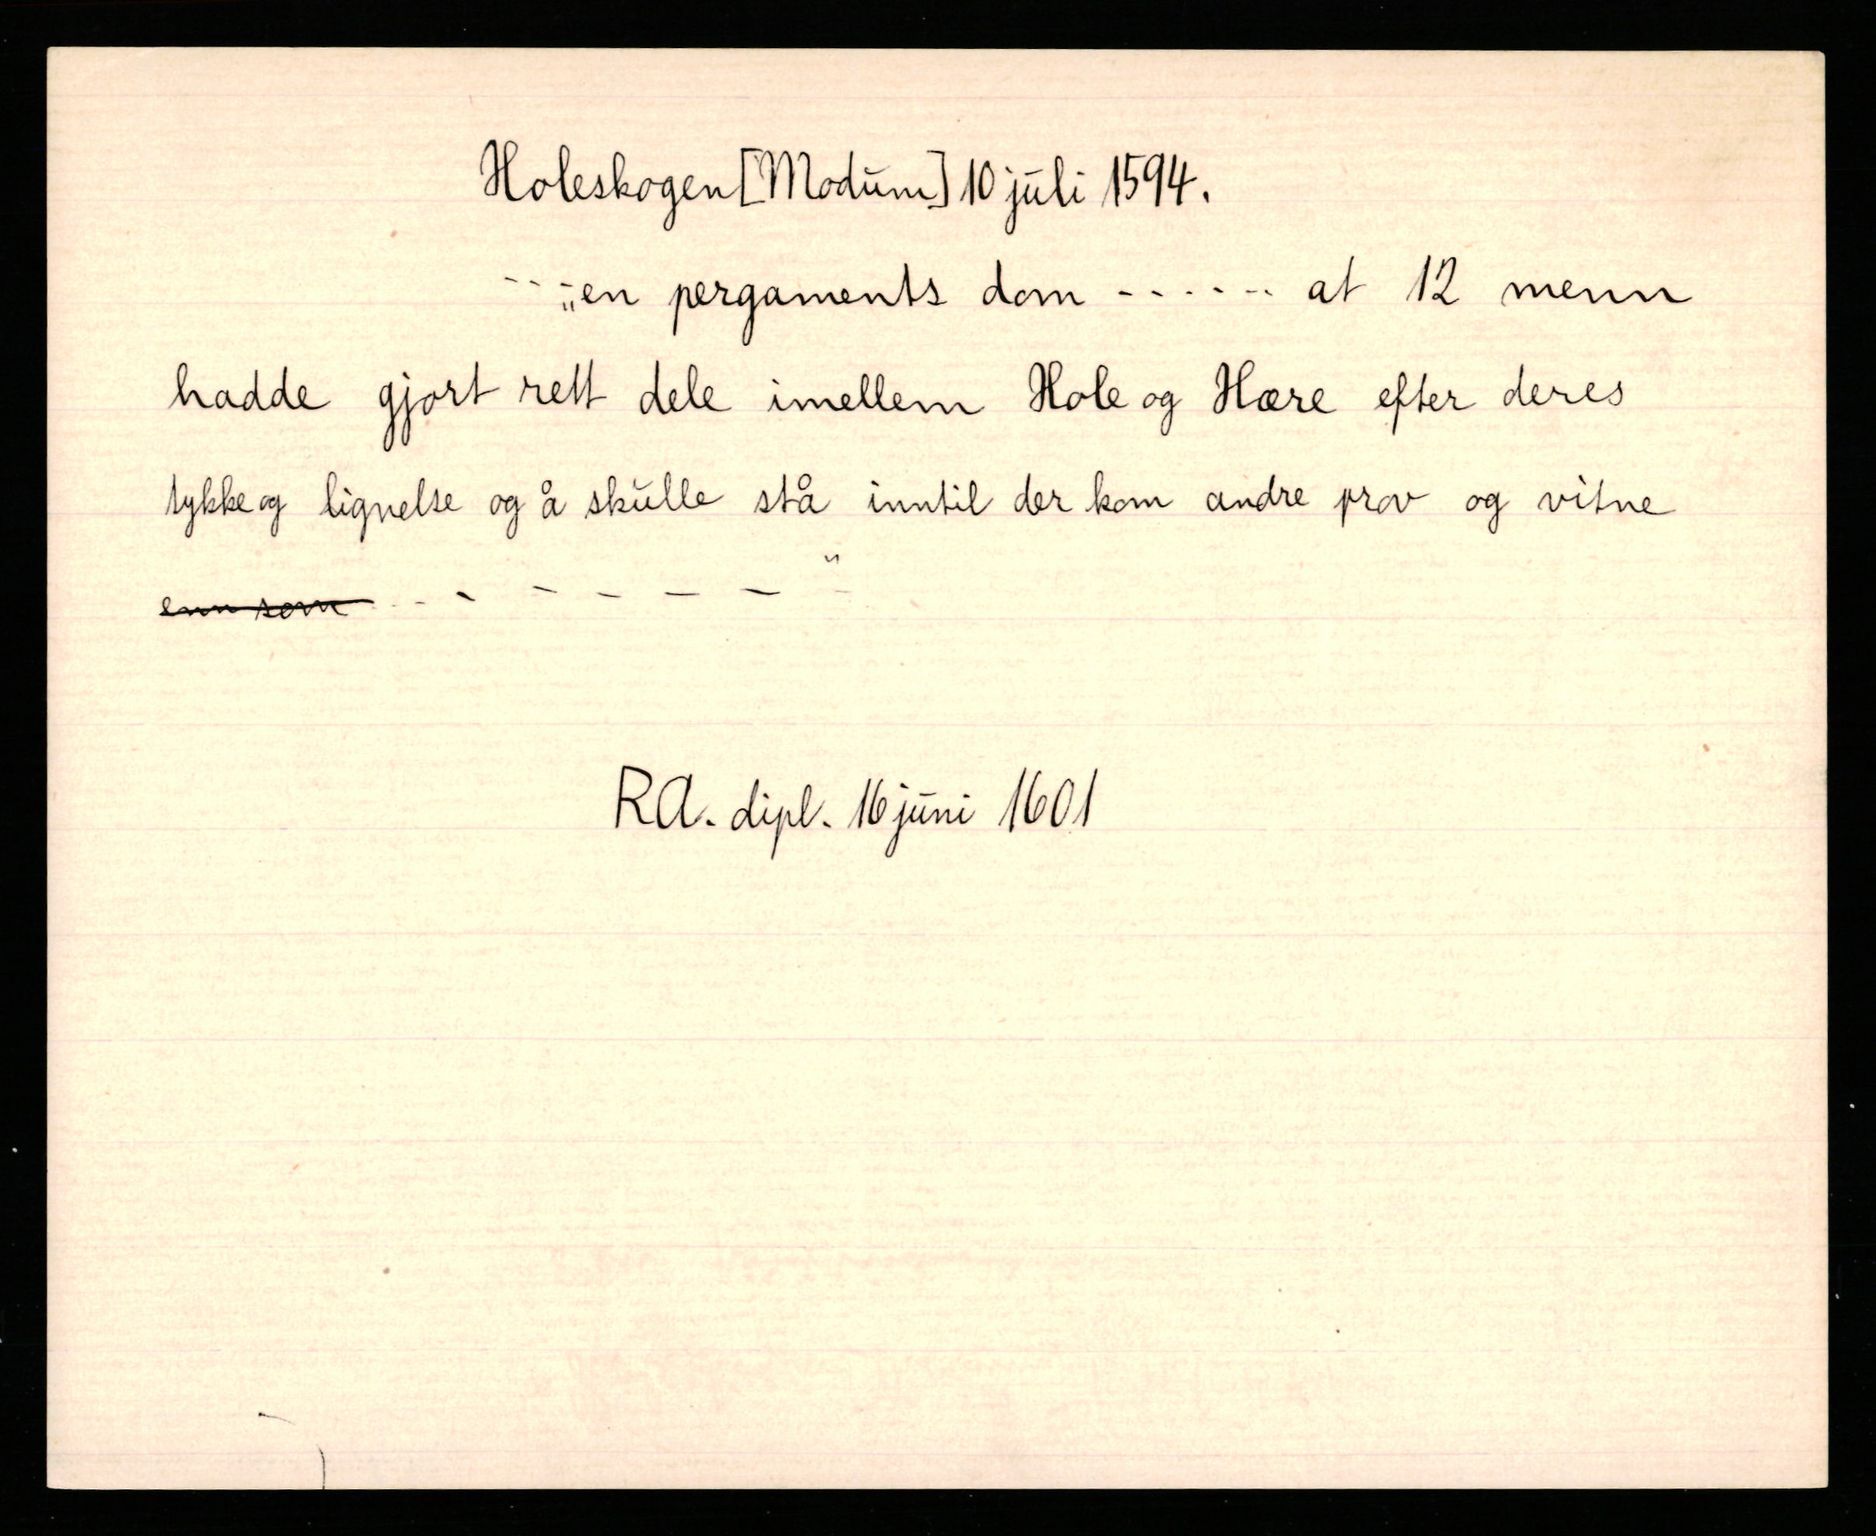 Holeskogen [Modum] 10 juli 1594.
- - - „en pergaments dom - - - - - - at 12 menn
hadde gjort rett dele imellem Hole og Hære efter deres
tykke og lignelse og å skulle stå inntil der kom andre prov og vitne
enn som - - - - - - - - "
RA. dipl. 16 juni 1601